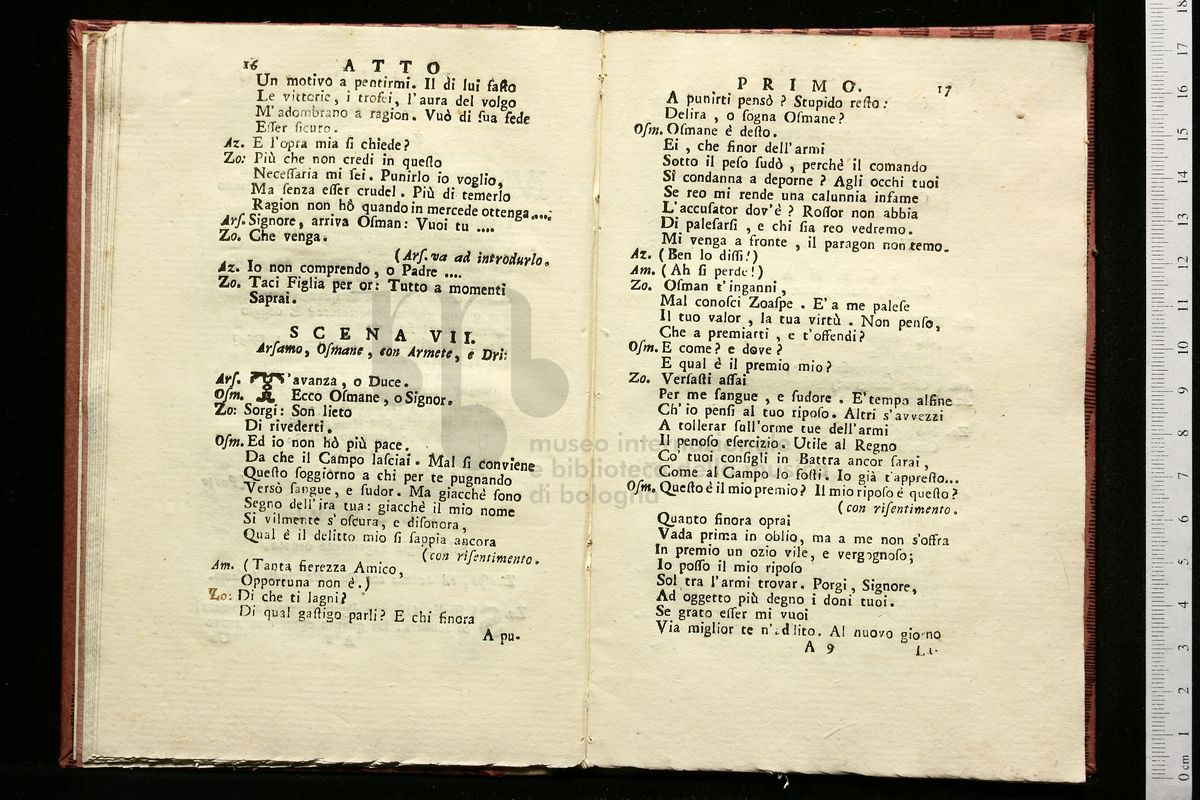 16 ATTO
Un motivo a pentirmi. Il di lui faſto
Le vittorie, i trofei, l'aura del volgo
M'adombrano a ragion. Vuò di ſua fede
Eſſer ſicuro.
Az. E l'opra mia ſi chiede?
Zo: Più che non credi in queſto
Neceſſaria mi ſei. Punirlo io voglio,
Ma ſenza eſſer crudel. Più di temerlo
Ragion non hò quando in mercede ottenga....
Arſ. Signore, arriva Oſman: Vuoi tu ....
Zo. Che venga.
(Arſ. va ad introdurlo.
Az. Io non comprendo, o Padre ....
Zo. Taci Figlia per or: Tutto a momenti
Saprai.
SCENA VII.
Arſamo, Oſmane, con Armete, e Dri:
Arſ. T'avanza, o Duce.
Oſm. Ecco Oſmane, o Signor.
Zo: Sorgi: Son lieto
Di rivederti.
Oſm. Ed io non hò più pace.
Da che il Campo laſciai. Mal ſi conviene
Queſto ſoggiorno a chi per te pugnando
Versò ſangue, e ſudor. Ma giacchè ſono
Segno dell'ira tua: giacchè il mio nome
Si vilmente s'oſcura, e diſonora,
Qual è il delitto mio ſi ſappia ancora
(con riſentimento.
Am. (Tanta fierezza Amico,
Opportuna non è.)
Zo: Di che ti lagni?
Di qual gaſtigo parli? E chi finora
A pu-
PRIMO. 17
A punirti pensò? Stupido reſto:
Delira, o ſogna Oſmane?
Oſm. Oſmane è deſto.
Ei, che finor dell'armi
Sotto il peſo ſudò, perchè il comando
Si condanna a deporne? Agli occhi tuoi
Se reo mi rende una calunnia infame
L'accuſator dov'è? Roſſor non abbia
Di paleſarſi, e chi ſia reo vedremo.
Mi venga a fronte, il paragon non temo.
Az. (Ben lo diſſi!)
Am. (Ah ſi perde!)
Zo. Oſman t'inganni,
Mal conoſci Zoaſpe. E' a me paleſe
Il tuo valor, la tua virtù. Non penſo,
Che a premiarti, e t'offendi?
Oſm. E come? e dove?
E qual è il premio mio?
Zo. Verſaſti aſſai
Per me ſangue, e ſudore. E' tempo alfine
Ch'io penſi al tuo ripoſo. Altri s'avvezzi
A tollerar ſull'orme tue dell'armi
Il penoſo eſercizio. Utile al Regno
Co' tuoi conſigli in Battra ancor ſarai,
Come al Campo lo foſti. Io già t'appreſto...
Oſm. Queſto è il mio premio? Il mio ripoſo è queſto?
(con riſentimento.
Quanto finora oprai
Vada prima in oblio, ma a me non s'offra
In premio un ozio vile, e vergognoſo;
Io poſſo il mio ripoſo
Sol tra l'armi trovar. Porgi, Signore,
Ad oggetto più degno i doni tuoi.
Se grato eſſer mi vuoi
Via miglior te n'addito. Al nuovo giorno
A 9 La-
museo internazionale
e biblioteca della musica
di bologna